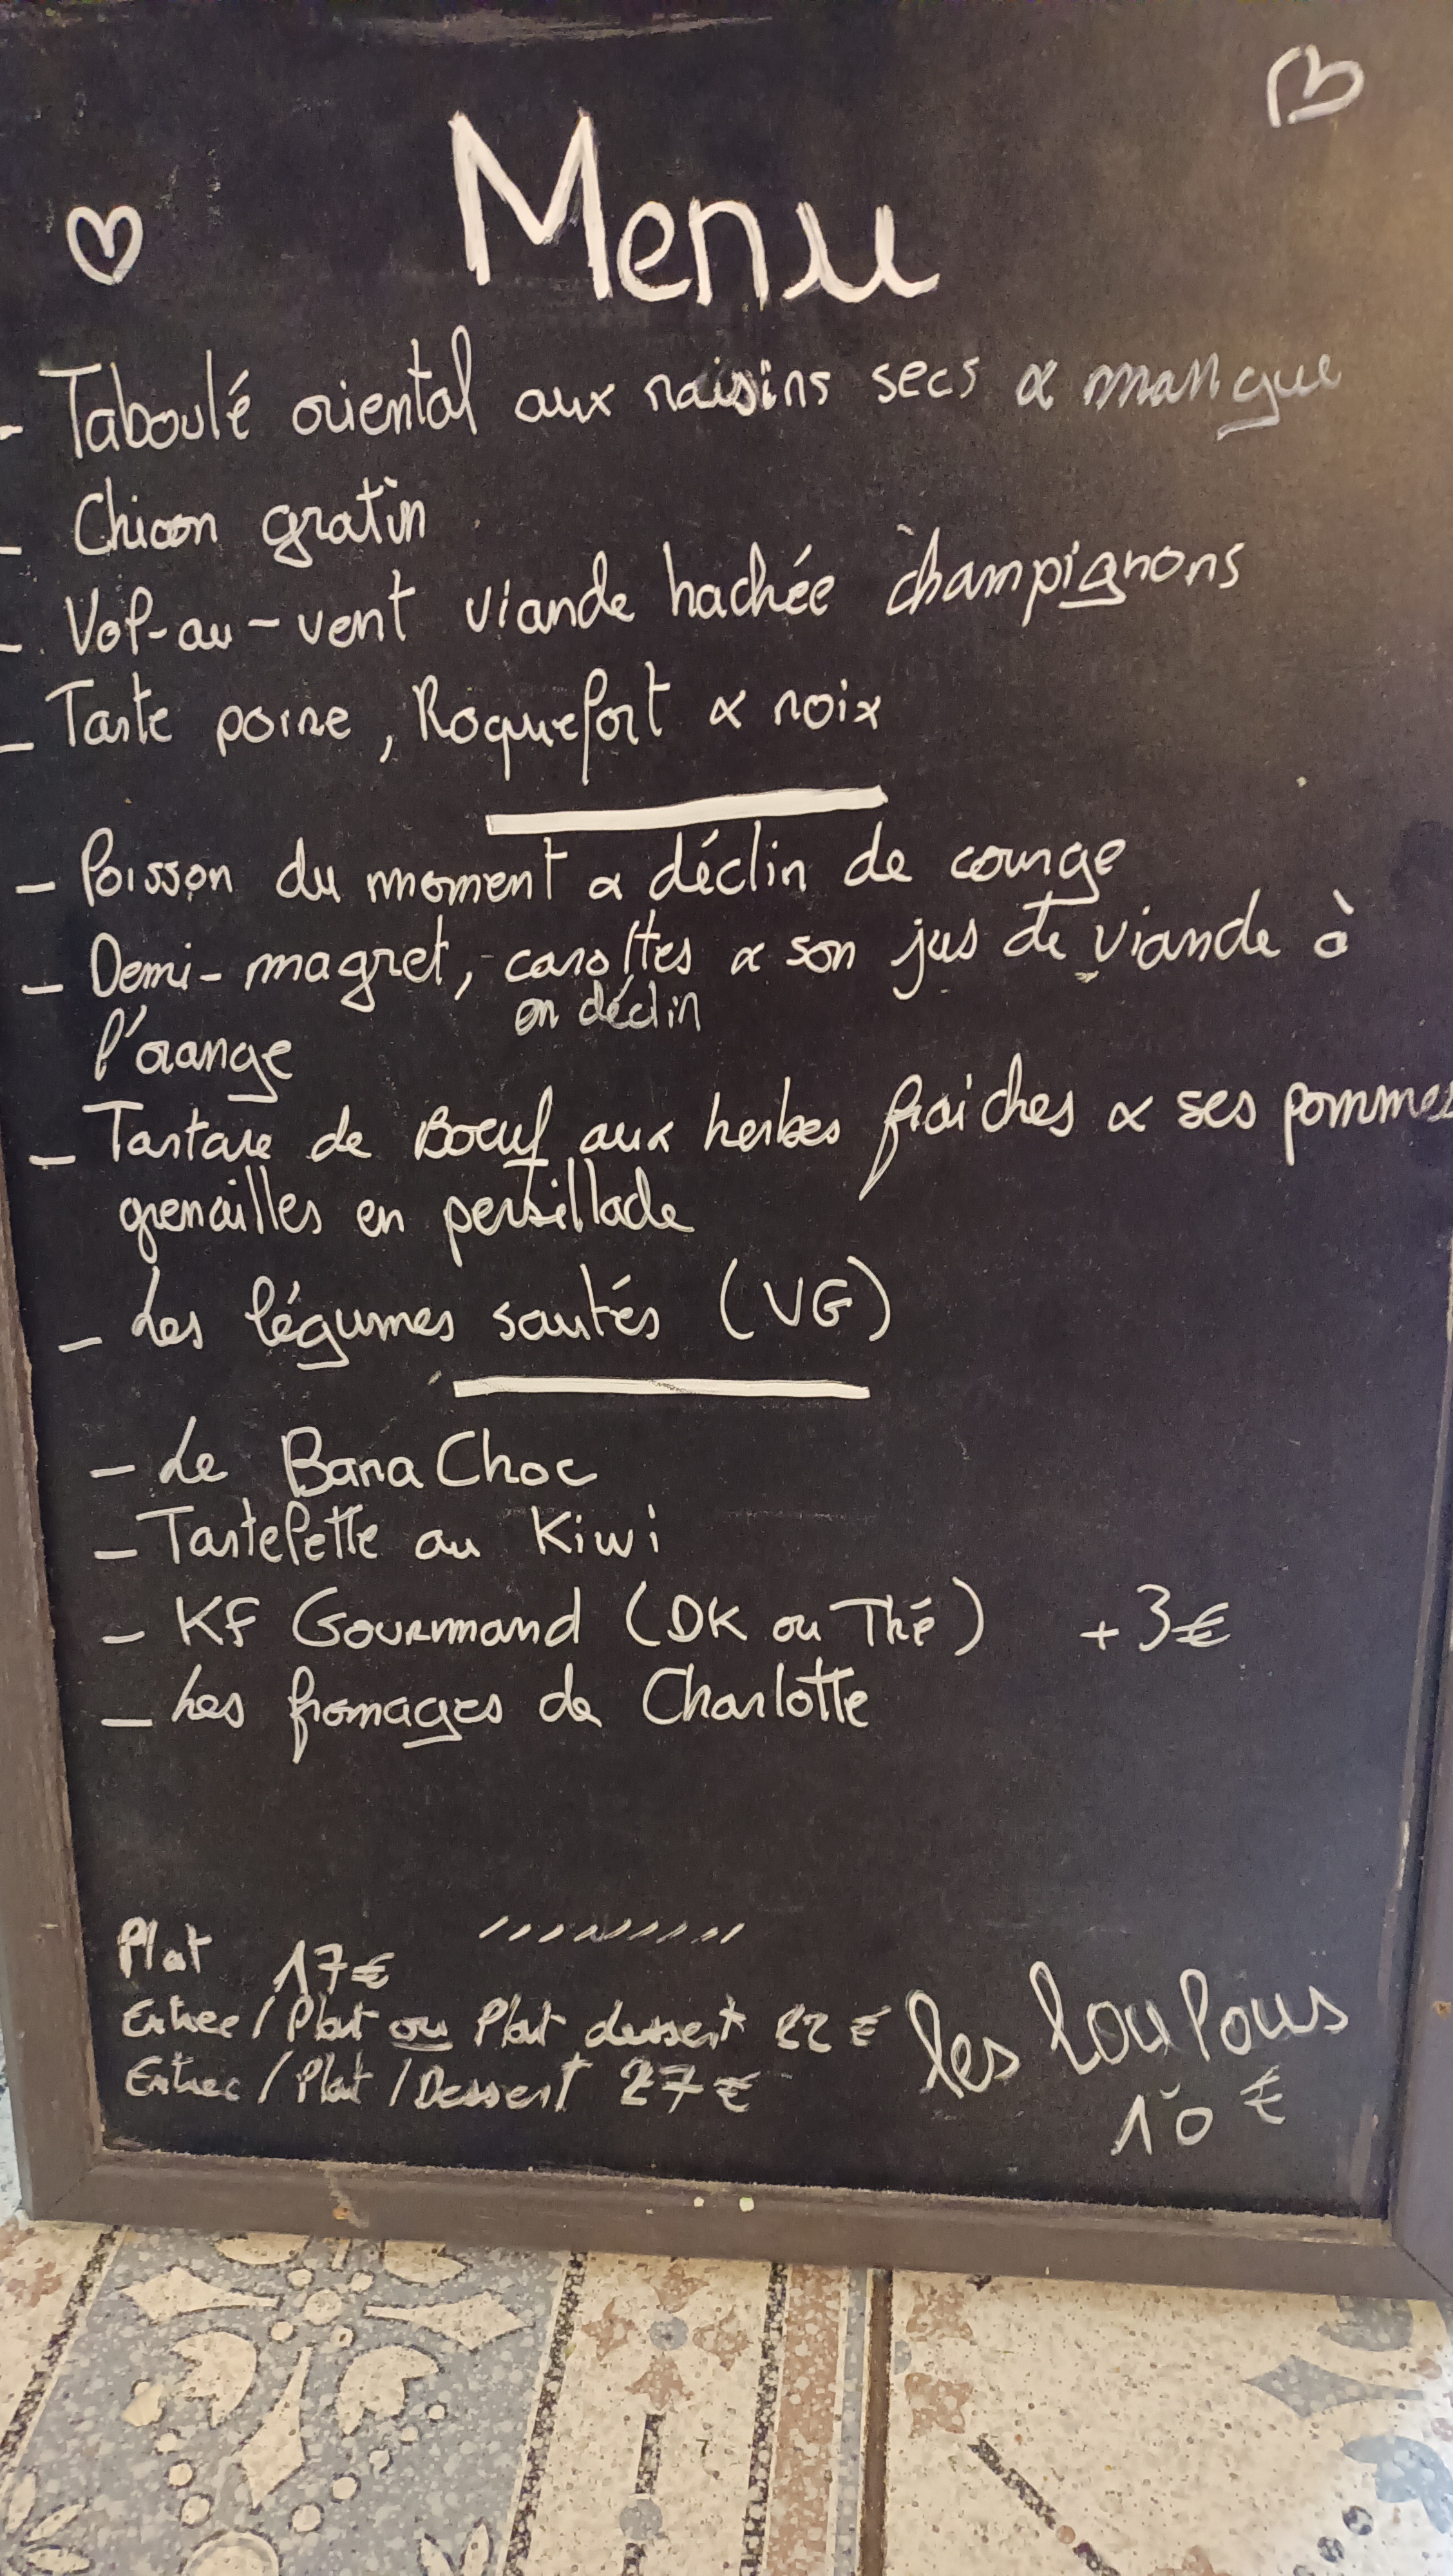 Menu
- Taboulé oriental aux raisins secs & mangue
- Chicon gratin
- Vol-au-vent viande hachée champignons
- Tarte poire, Roquefort & noix
- Poisson du moment & déclin de courge
- Demi-magret, carottes & son jus de viande à
en déclin
l'orange
- Tartare de Boeuf aux herbes fraiches & ses pommes
grenailles en persillade
- Les légumes sautés (VG)
- Le Bana Choc
- Tartelette au Kiwi
- KF Gourmand (DK ou Thé) +3€
- Les fromages de Charlotte
Plat 17€
Entrée/Plat ou Plat dessert 22€
Entrée/Plat/Dessert 27€
les loulous
10€